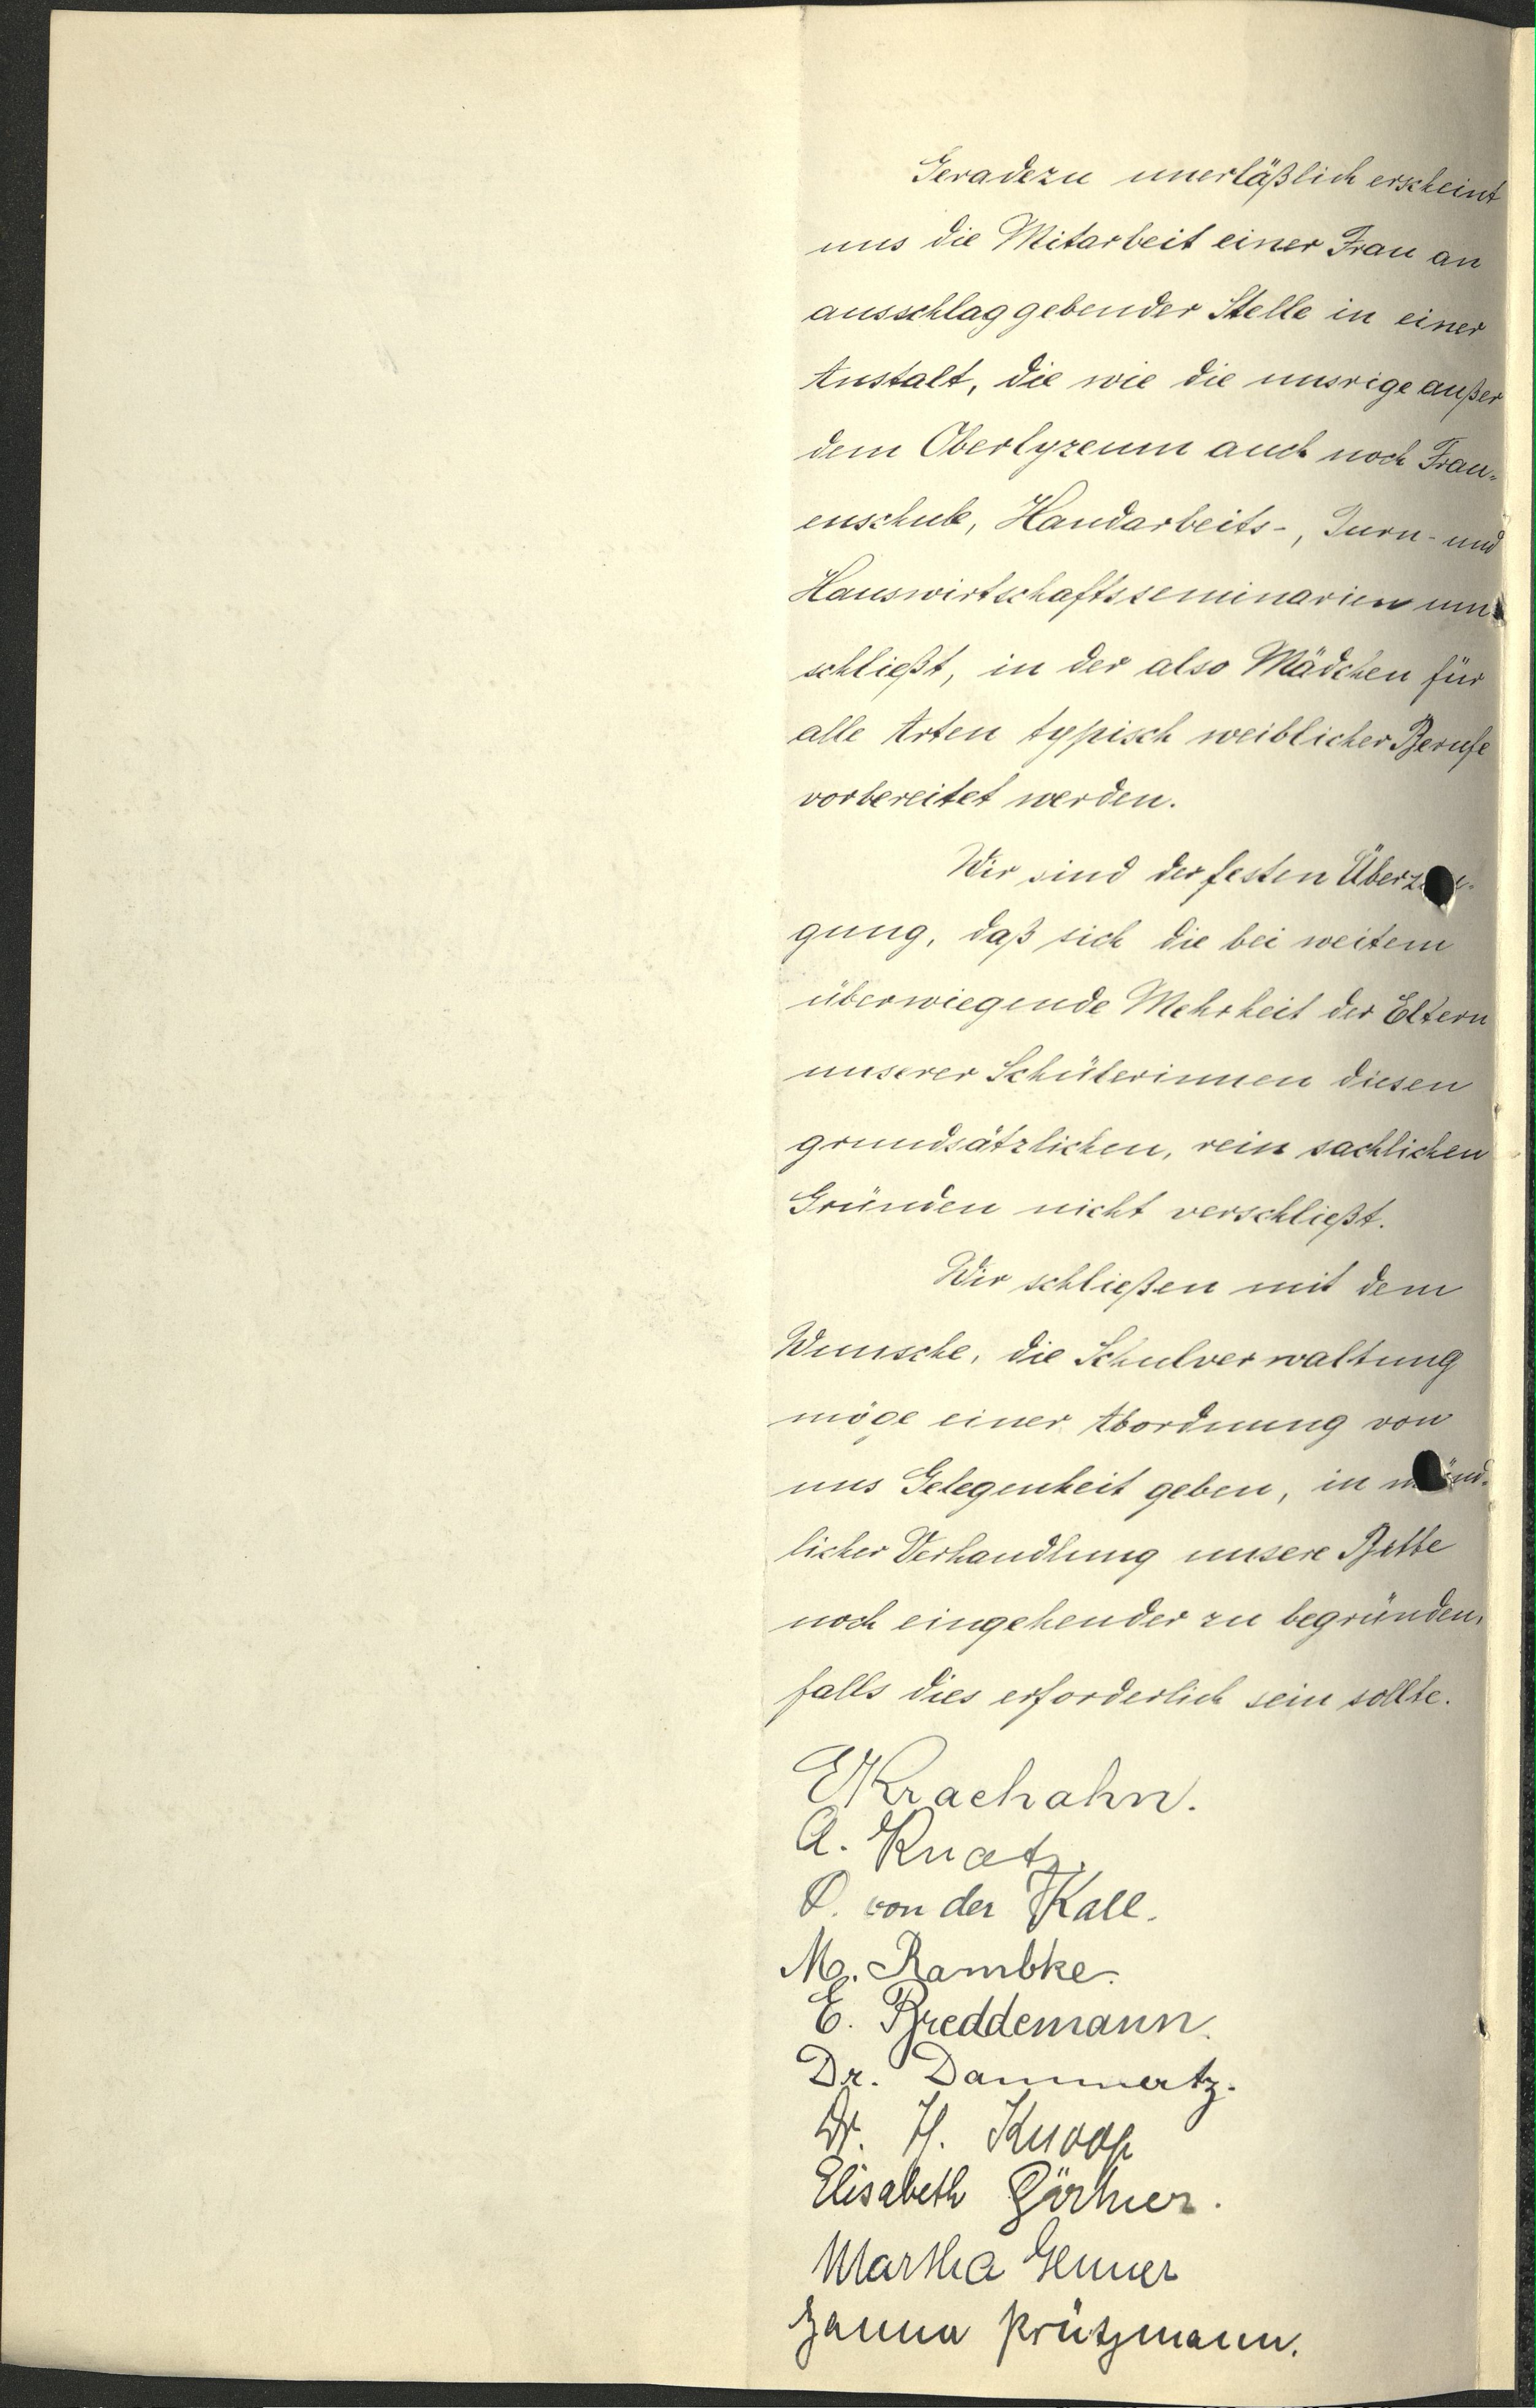 Geradezu unerläßlich erscheint
uns die Mitarbeit einer Frau an
ausschlaggebender Stelle in einer
Anstalt, die wie die unsrige außer
dem Oberlyzeum auch noch Frau-
enschule, Handarbeits-, Turn- und
Hauswirtschaftsseminarien um-
schließt, in der also Mädchen für
alle Arten typisch weiblicher Berufe
vorbereitet werden.
Wir sind der festen Überzeu-
gung, daß sich die bei weitem
überwiegende Mehrheit der Eltern
unserer Schülerinnen diesen
grundsätzlichen, rein sachlichen
Gründen nicht verschließt.
Wir schließen mit dem
Wunsche, die Schulverwaltung
möge einer Abordnung von
uns Gelegenheit geben, in münd-
licher Verhandlung unsere Bitte
noch eingehender zu begründen,
falls dies erforderlich sein sollte.
E Krachahn.
A. Knatz.
von der Kall.
M. Rambke.
E. Breddemann.
Dr. Dammertz.
Dr. H. Knoop
Elisabeth Gärtner.
Martha Genner
Hanna Prützmann.